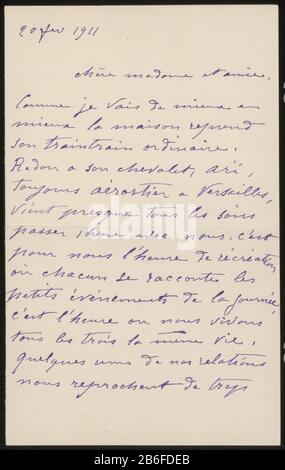 20 fev 1911
chère madame et amie,
Comme je vais de mieux en
mieux la maison reprend
son traintrain ordinaire.
Redon a son chevalet, Arï,
toujours aerostier a Versailles,
vient presque tous les soirs
passer 1 heure avec nous, c'est
pour nous l'heure de récréation
où chacun se raconte les
petits événements de la journée,
c'est l'heure ou nous vivons
tous les trois la meme vie.
quelques uns de nos relations
nous reprochent de trop
alamy
Image ID: 2B6FDEB
www.alamy.com